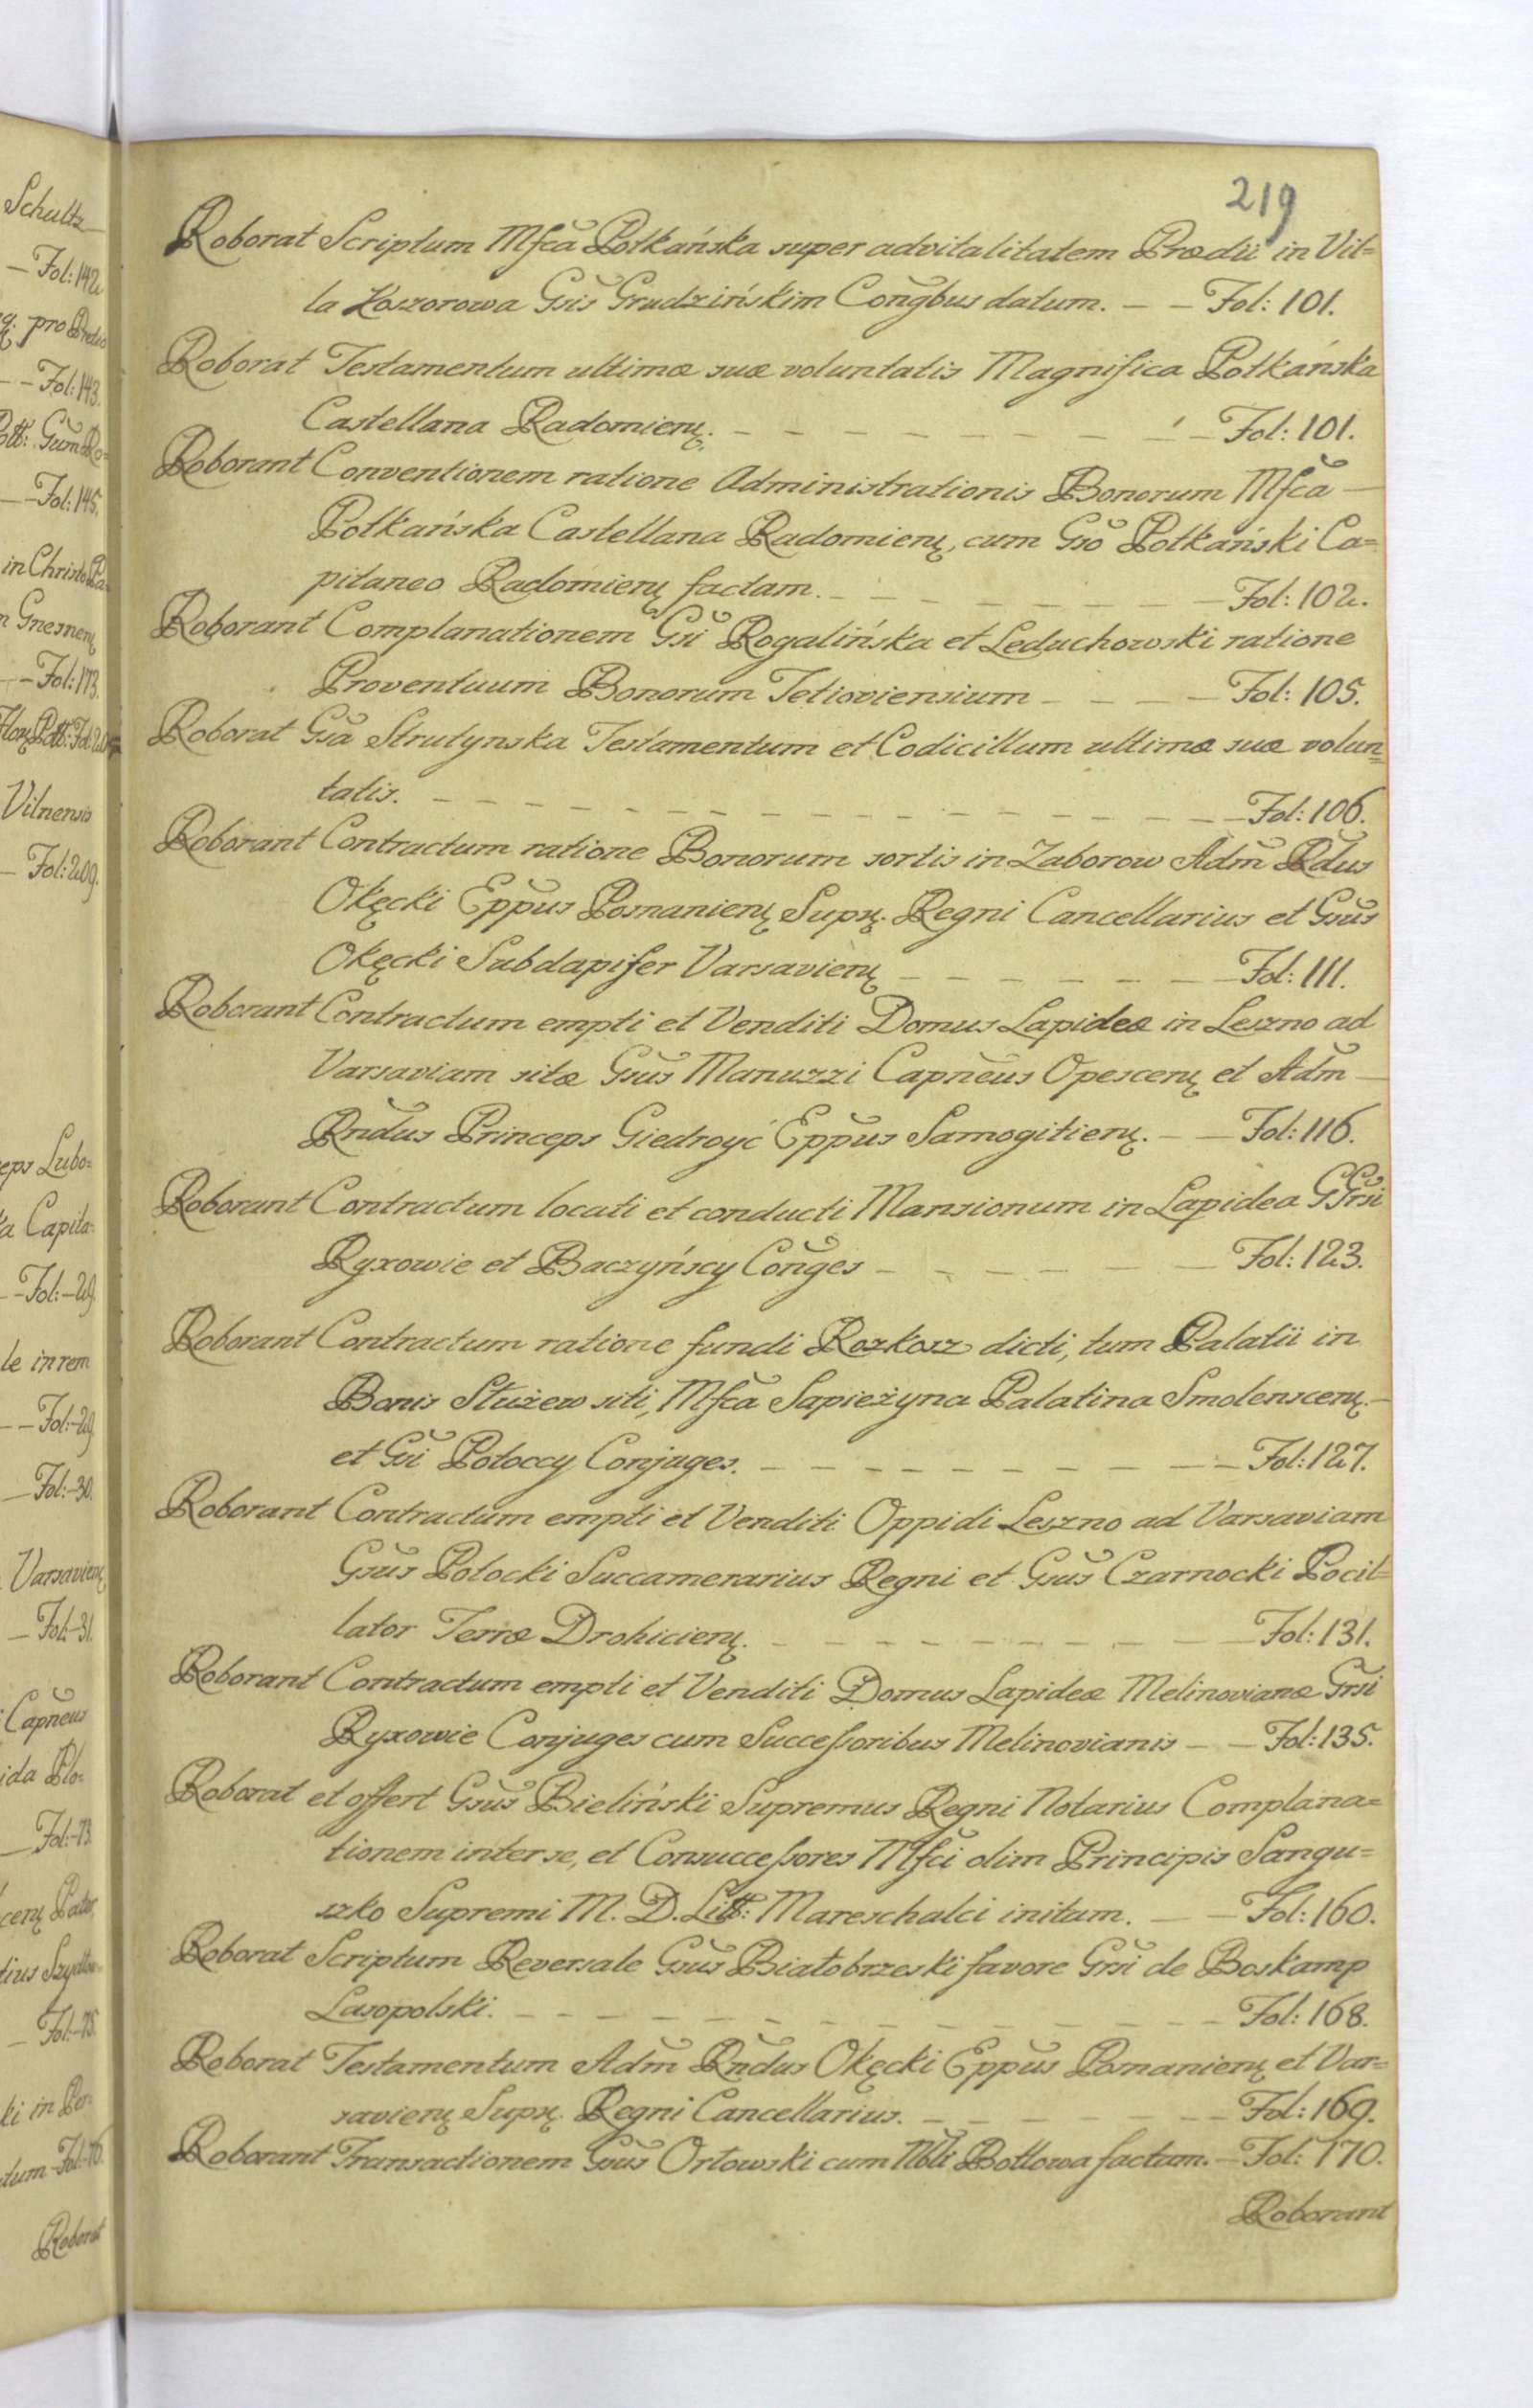 219
Roborat Scriptum Mfca Potkańska super advitalitatem Prædii in Vil=
la Koszorowa Gsis Grudzińskim Congbus datum. — — Fol: 101.
Roborat Testamentum ultimæ suæ voluntatis Magnifica Potkańska
Castellana Radomien. — Fol: 101.
Roborant Conventionem ratione Administrationis Bonorum Mfca —
Potkańska Castellana Radomien, cum Gso Potkański Ca=
pitaneo Radomien factam. — Fol: 102.
Roborant Complanationem Gsi Rogalińska et Leduchowski ratione
Proventuum Bonorum Tetioviensium — Fol: 105.
Roborat Gsa Strutynska Testamentum et Codicillum ultimæ suæ volun=
tatis. — Fol: 106.
Roborant Contractum ratione Bonorum sortis in Zaborow Adm Rdus
Okęcki Eppus Posnanien Supr. Regni Cancellarius et Gsus
Okęcki Subdapifer Varsavien — Fol: 111.
Roborant Contractum empti et Venditi Domus Lapideæ in Leszno ad
Varsaviam sitæ Gsus Manuzzi Capneus Opescen et Adm —
Rndus Princeps Giedroyć Eppus Samogitien. — — Fol: 116.
Roborant Contractum locati et conducti Mansionum in Lapidea GGrsi
Ryxowie et Baczyńscy Conges — Fol: 123.
Roborant Contractum ratione fundi Rozkosz dicti, tum Palatii in
Bonis Służew siti, Mfca Sapieżyna Palatina Smolenscen. —
et Gsi Potoccy Conjuges. — Fol: 127.
Roborant Contractum empti et Venditi Oppidi Leszno ad Varsaviam
Gsus Potocki Succamerarius Regni et Gsus Czarnocki Pocil=
lator Terræ Drohicien. — Fol: 131.
Roborant Contractum empti et Venditi Domus Lapideæ Melinovianæ Grsi
Ryxowie Conjuges cum Successoribus Melinovianis — — Fol: 135.
Roborat et offert Gsus Bieliński Supremus Regni Notarius Complana=
tionem inter se, et Consuccessores Mfci olim Principis Sangu=
szko Supremi M. D. Litt: Mareschalci initam. — — Fol: 160.
Roborat Scriptum Reversale Gsus Białobrzeski favore Grsi de Boskamp
Lasopolski. — Fol: 168.
Roborat Testamentum Adm Rndus Okęcki Eppus Posnanien et Var=
savien Supr. Regni Cancellarius. — Fol: 169.
Roborant Transactionem Gsus Orłowski cum Nbli Bottowa factam. — Fol: 170.
Roborant